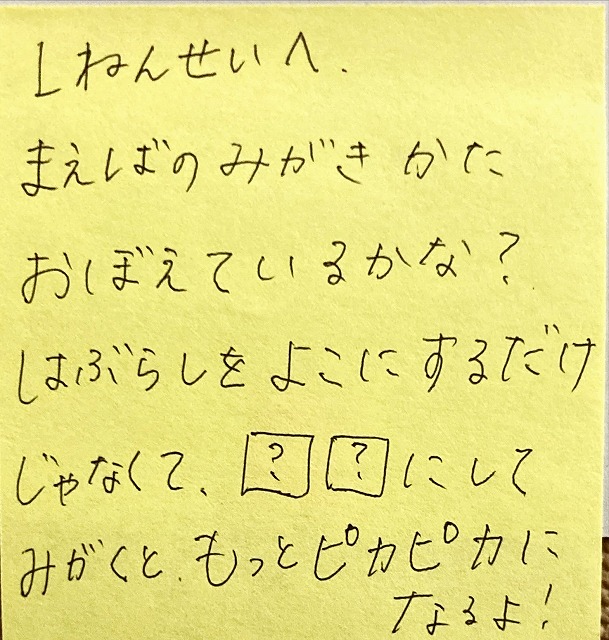 1ねんせいへ.
まえばのみがきかた
おぼえているかな?
はぶらしをよこにするだけ
じゃなくて、??にして
みがくと、もっとピカピカに
なるよ!